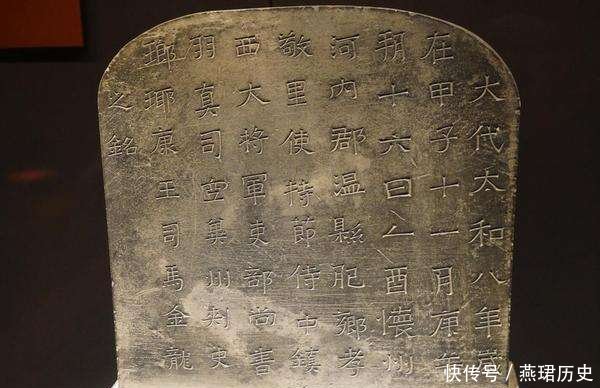 大代太和八年歲
在甲子十一月庚午
朔十六日乙酉懷州
河内郡温縣肥鄉孝
敬里使持節侍中鎮
西大將軍吏部尚書
羽真司空冀州刺史
瑯琊康王司馬金龍
之銘
快传号 / 燕珺历史